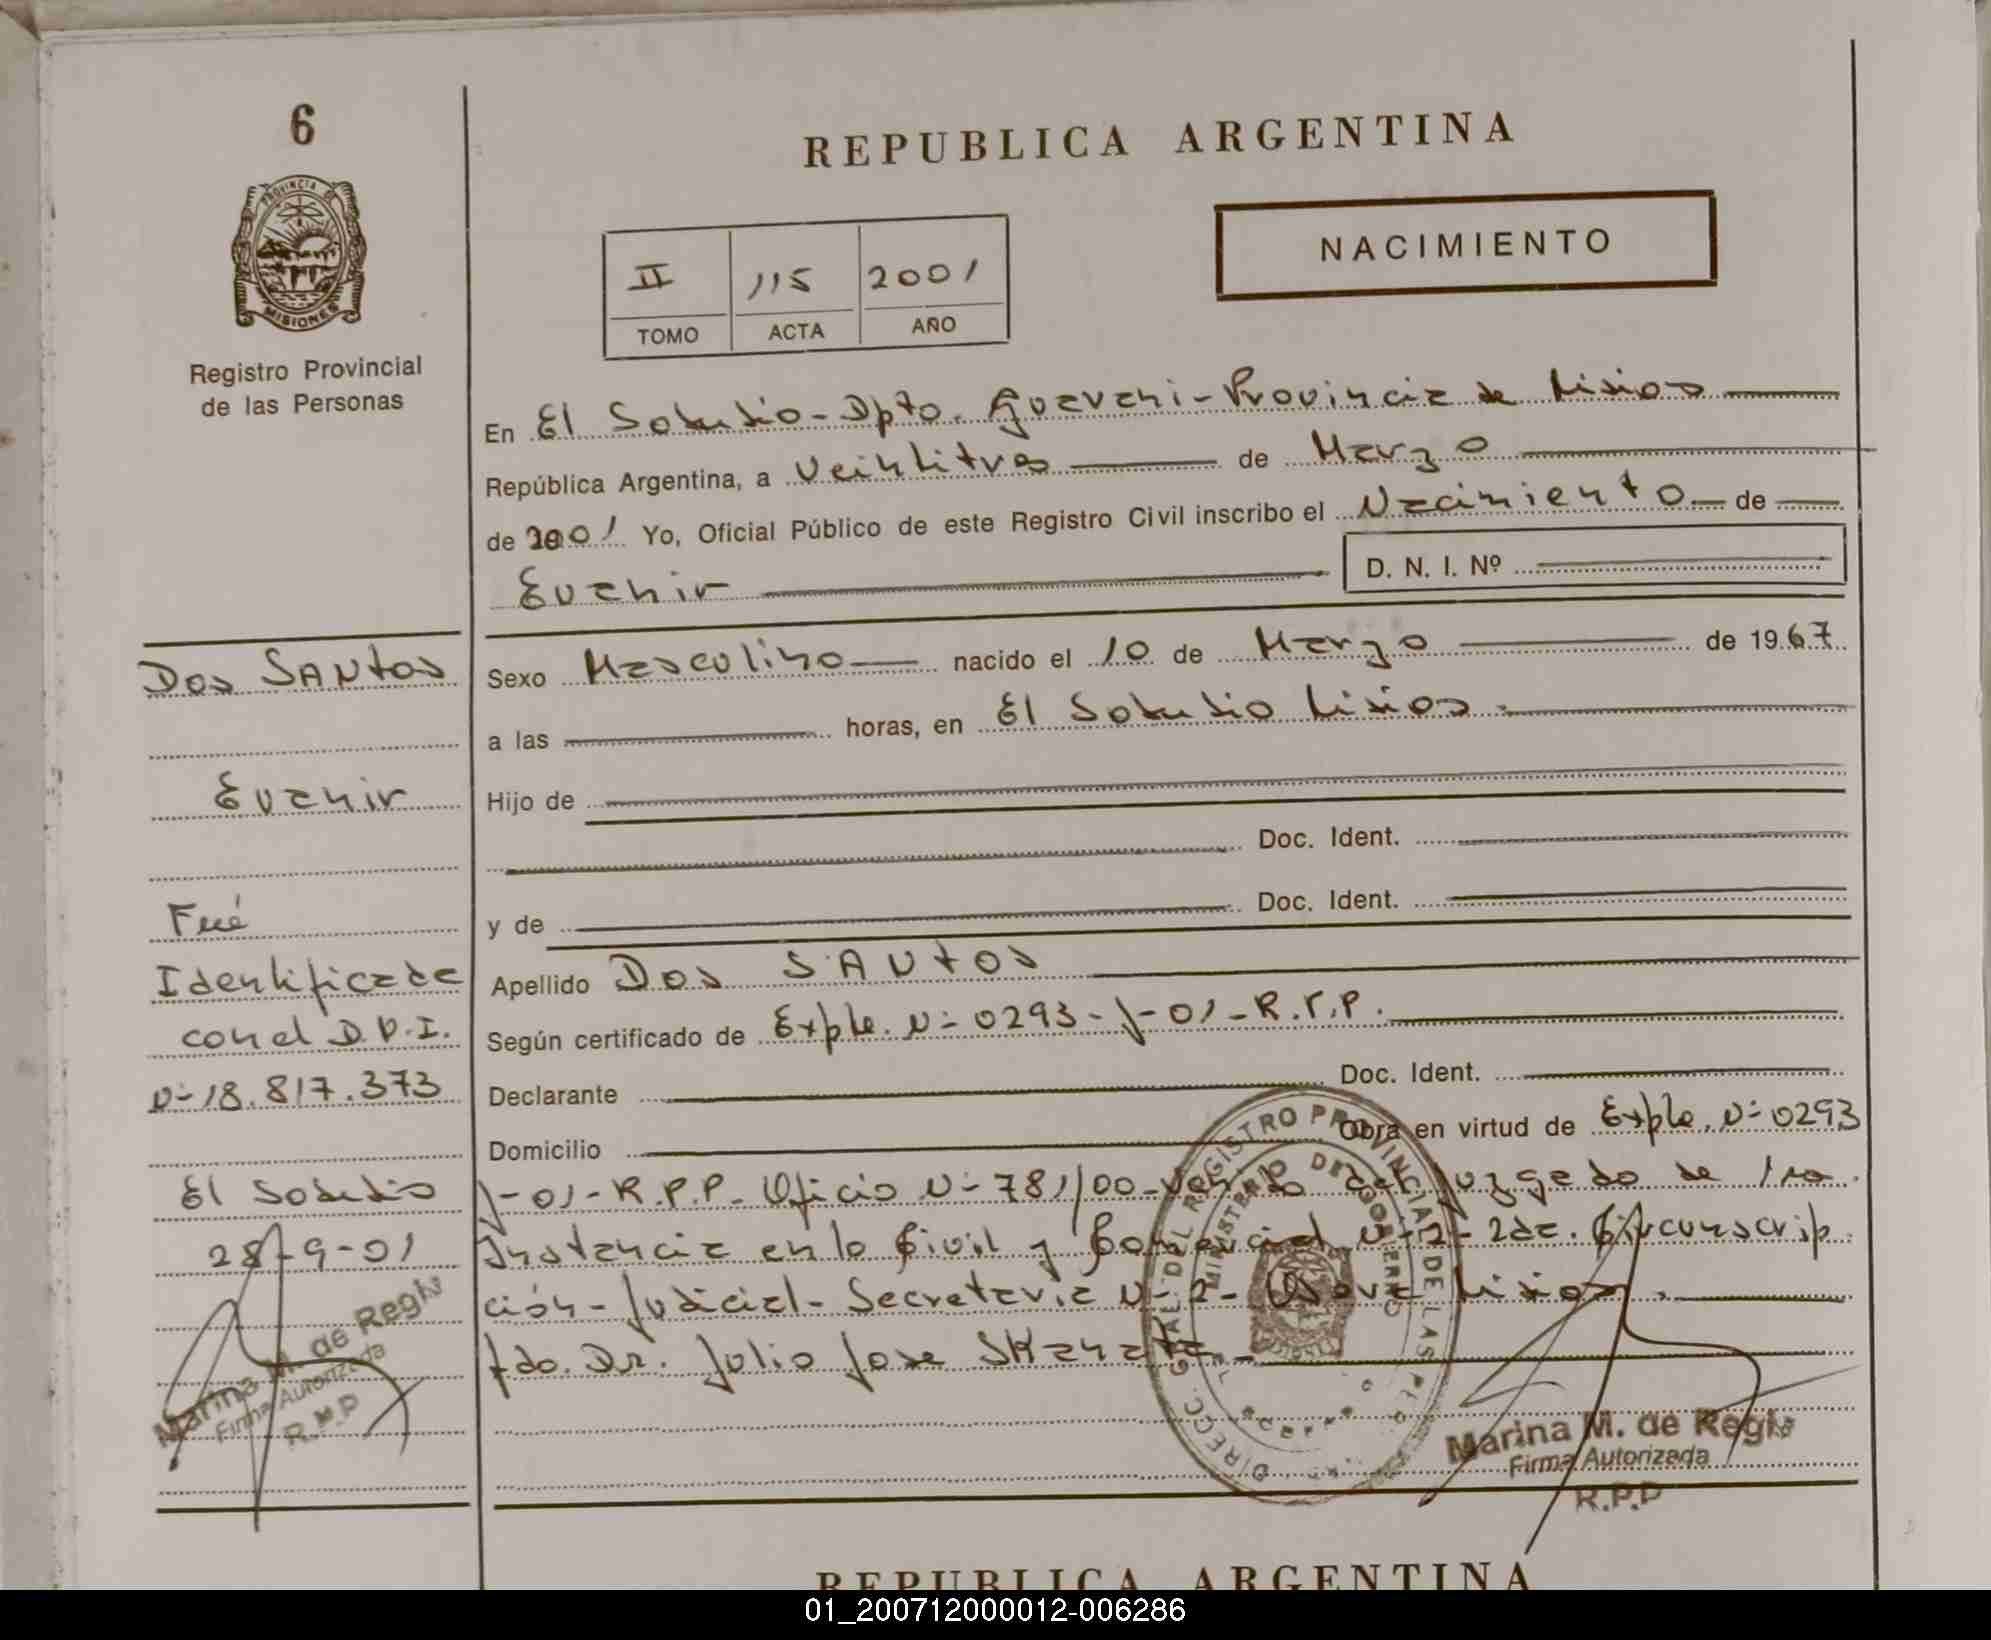 6
PROVINCIA DE
MISIONES
Registro Provincial
de las Personas
REPUBLICA ARGENTINA
NACIMIENTO
II 115 2001
TOMO ACTA AÑO
En El Soberbio - Dpto. Guarani - Provincia de Misiones
República Argentina, a Veintitres de Marzo
de 2001 Yo, Oficial Público de este Registro Civil inscribo el Nacimiento de
Evanir D. N. I. Nº
Dos SANtos
Evanir
Sexo Masculino nacido el 10 de Marzo de 1967
a las horas, en El Soberbio Misiones.
Hijo de
Doc. Ident.
y de Doc. Ident.
Apellido Dos SANtos
Según certificado de Expte. Nº 0293-J-01-R.P.P.
Declarante Doc. Ident.
Domicilio Obra en virtud de Expte. Nº 0293
J-01-R.P.P. Oficio Nº 781/00 del Juzgado de 1ra.
Instancia en lo Civil y Comercial Nº 2 - 2da. Circunscrip
ción - Judicial - Secretaria Nº 2 - Oberá Misiones.
fdo. Dr. Julio Jose
Fué
Identificado
con el D.N.I.
Nº 18.817.373
El Soberbio
28-9-01
Marina M. de Regis
Firma Autorizada
R.P.P
DIRECC. GRAL. DEL REGISTRO PROVINCIAL DE LAS
MINISTERIO DE GOBIERNO
Marina M. de Regis
Firma Autorizada
R.P.P
REPUBLICA ARGENTINA
01_200712000012-006286